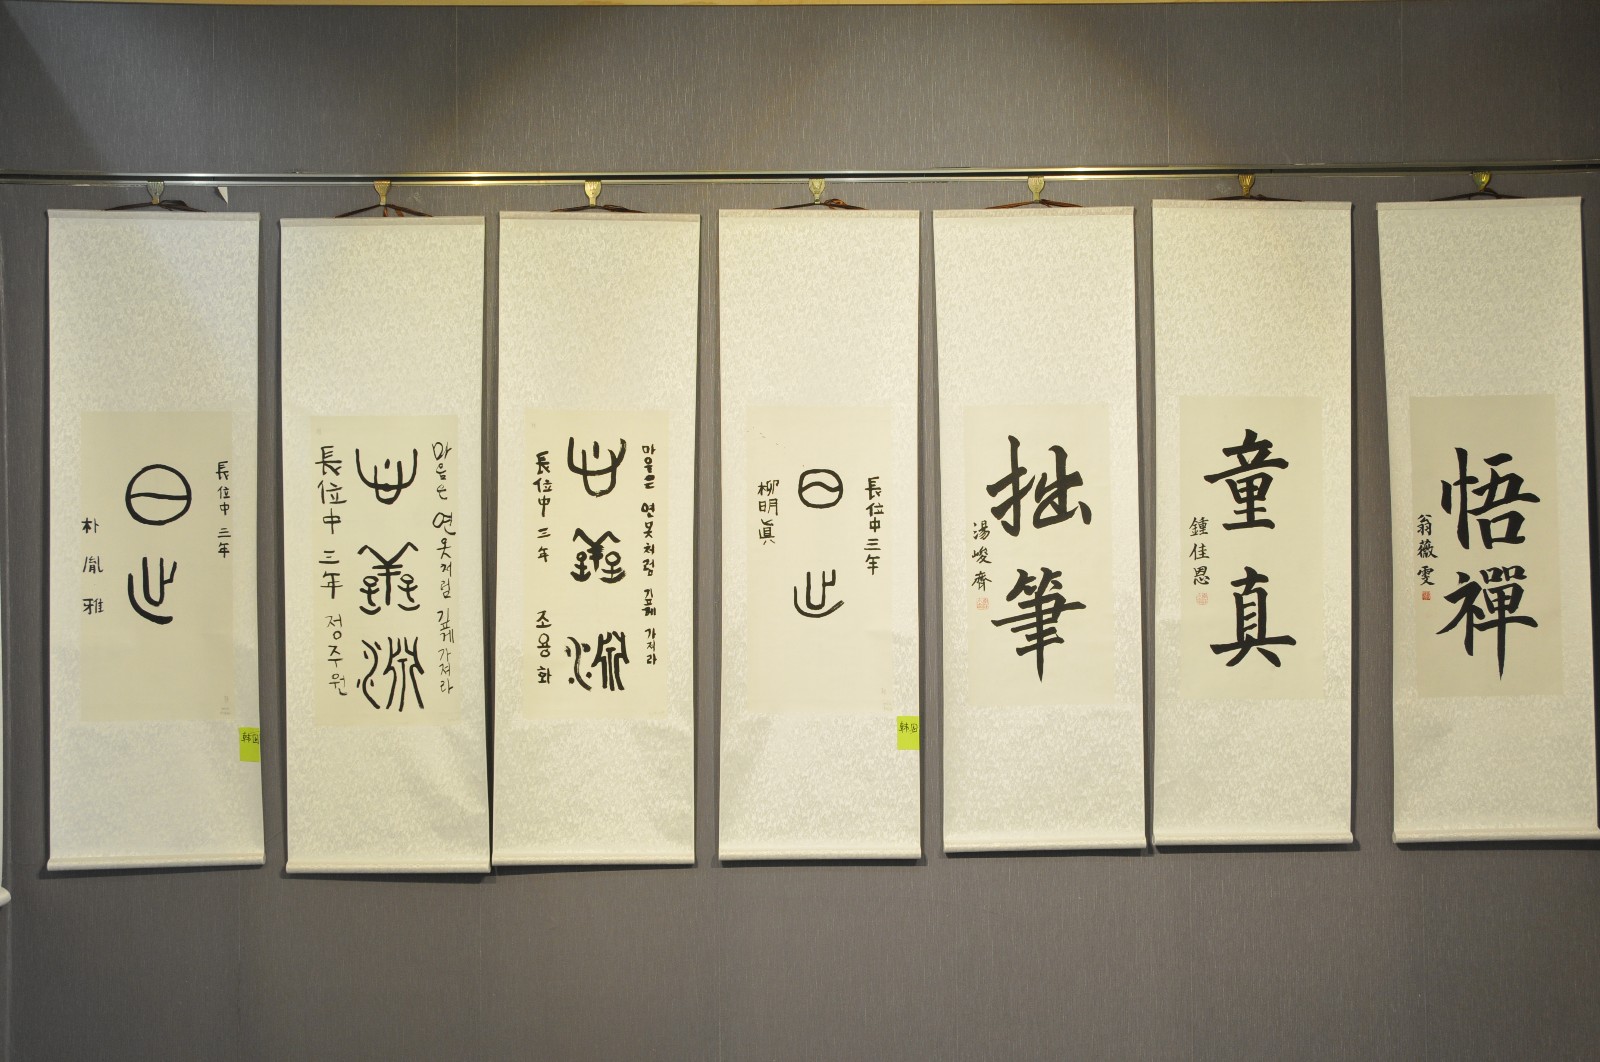 長位中 三年
日
朴胤雅
韩国
마음은 연못처럼 깊게 가져라
心善淵
長位中 三年 정주원
마음은 연못처럼 깊게 가지라
心善淵
長位中 三年 조용화
長位中三年
日
柳明眞
韩国
拙筆
湯峻齊
童真
鍾佳恩
悟禪
翁薇雯